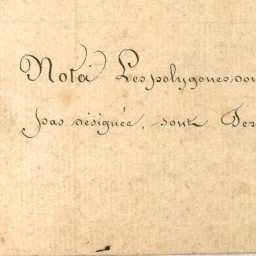 Nota Les polygones don
pas désignée, sont Ter